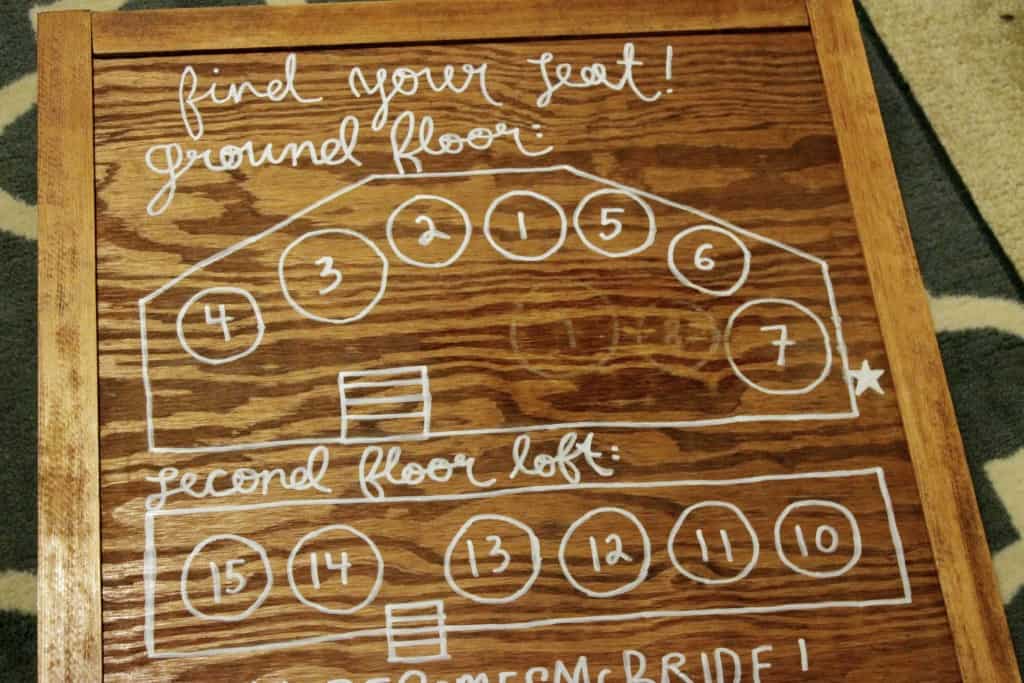 find your seat!
ground floor:
2 1 5
3 6
4 7
second floor loft:
15 14 13 12 11 10